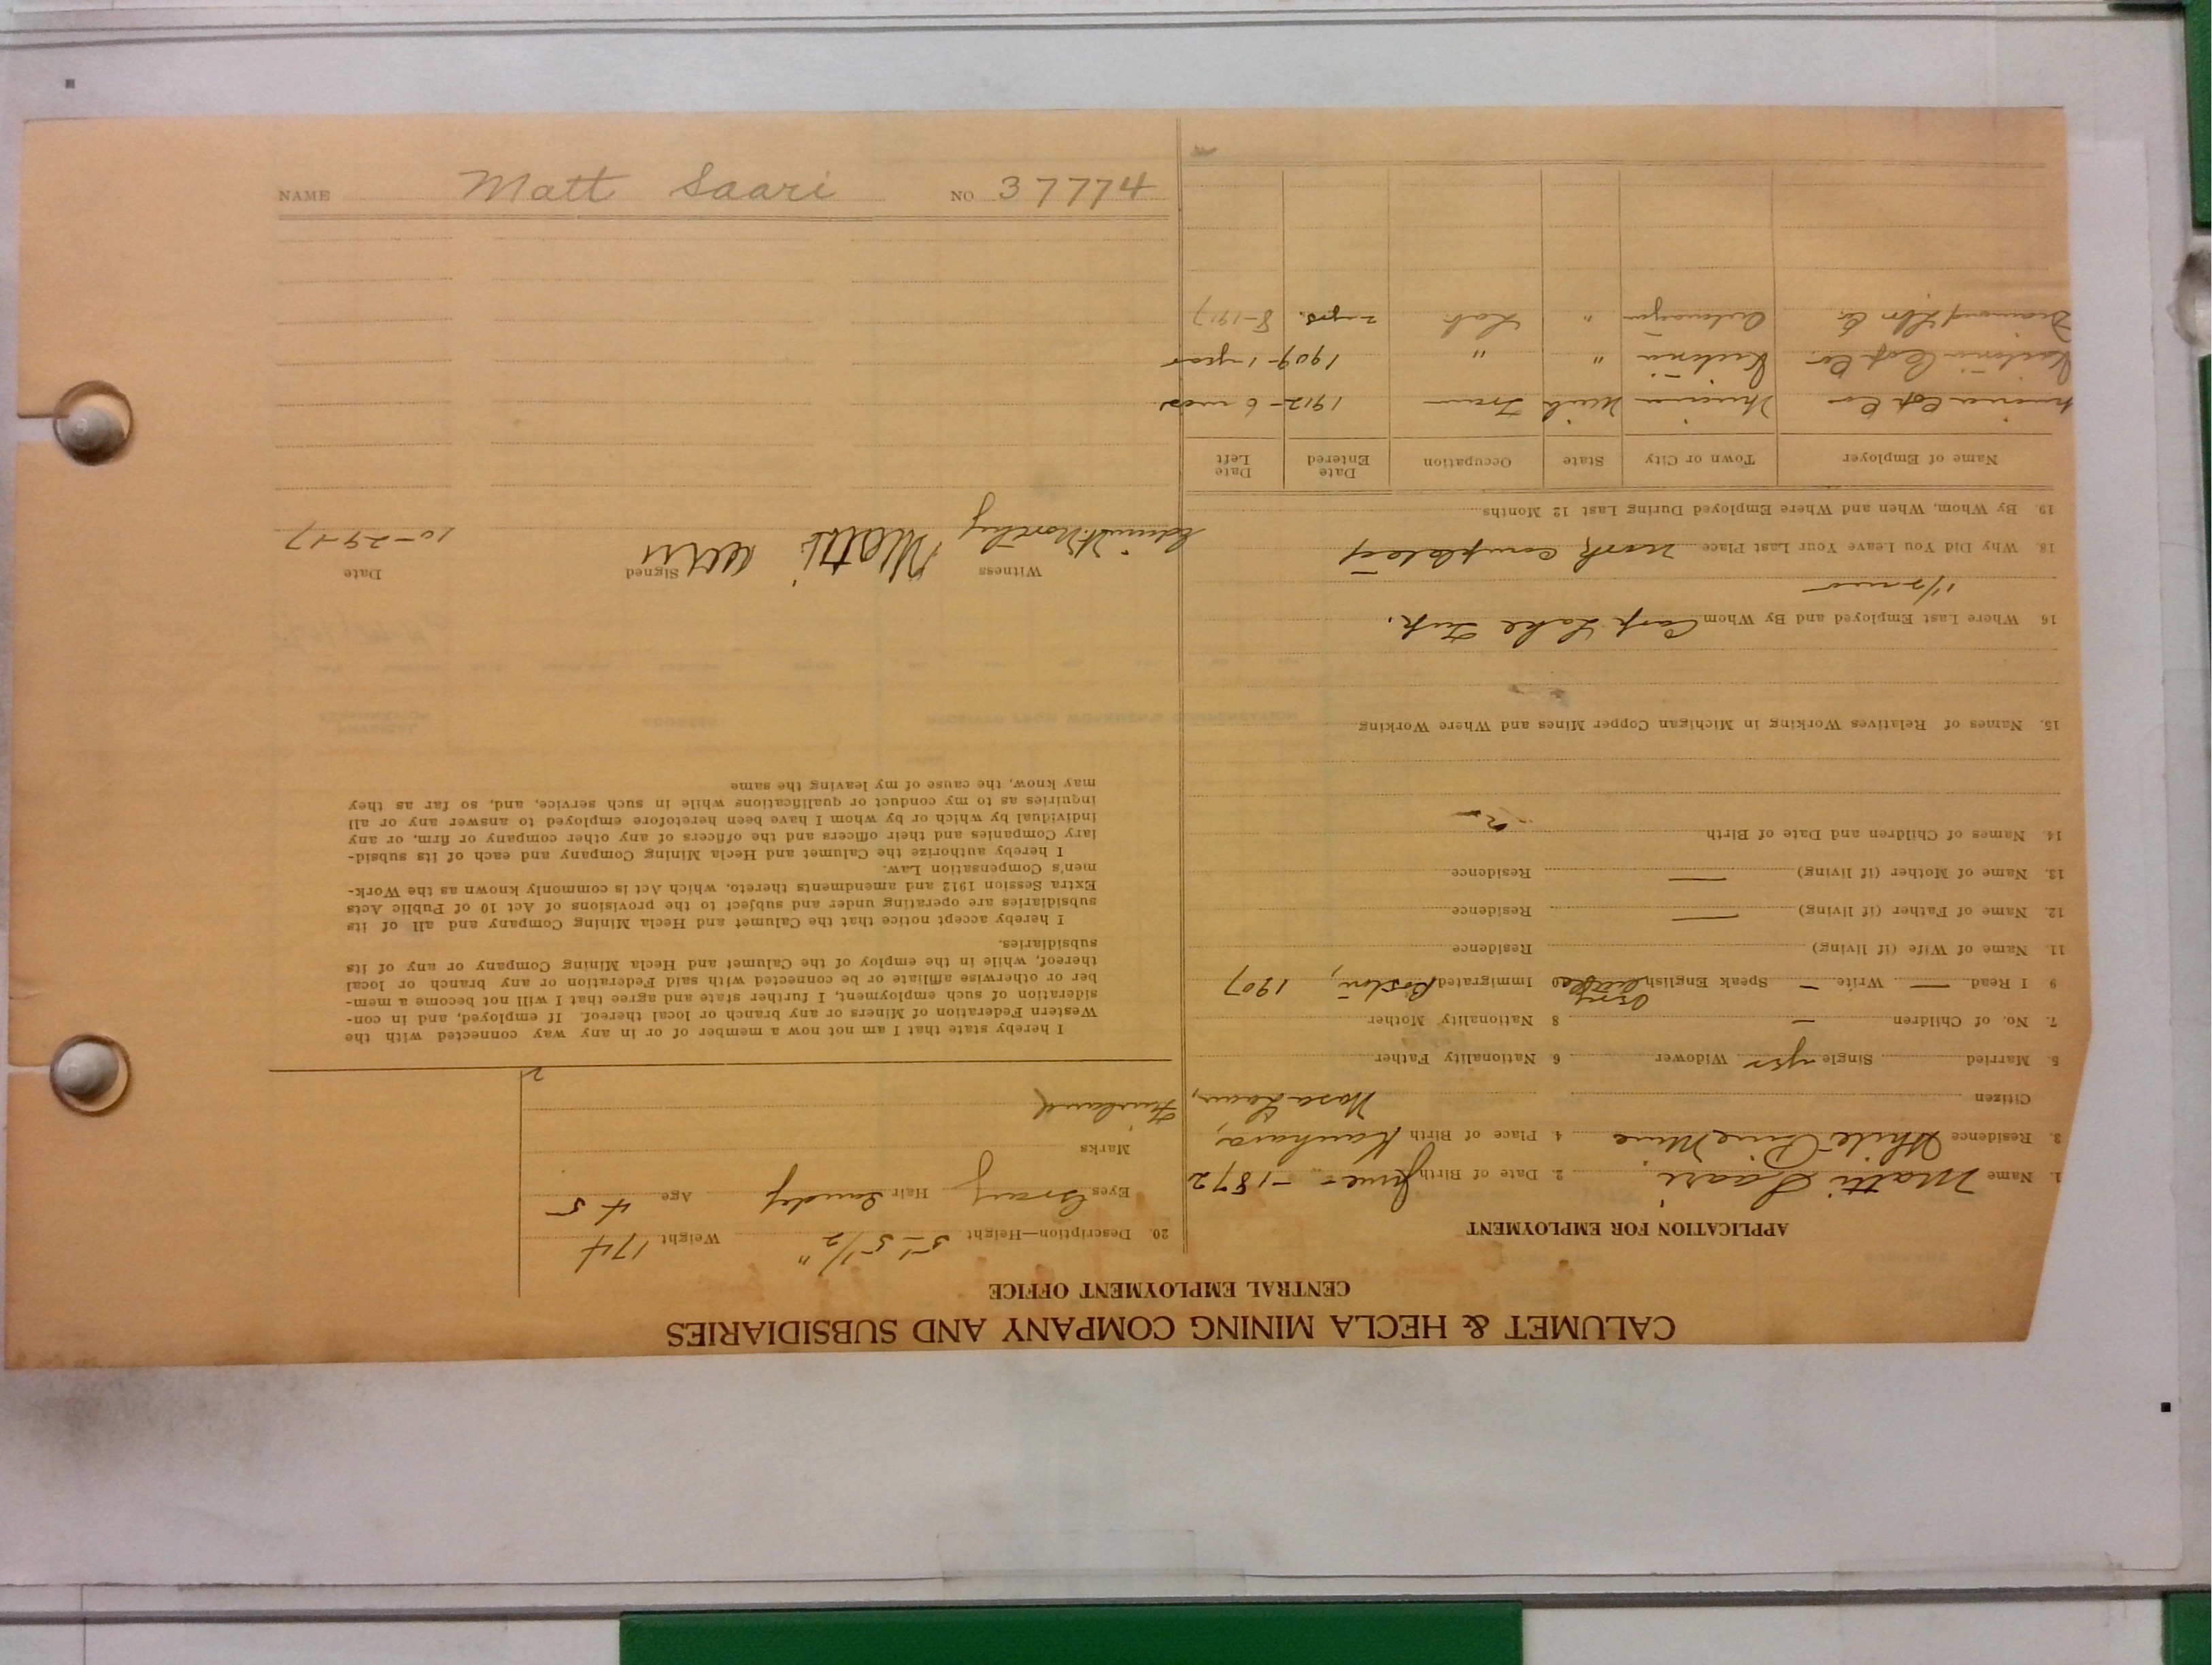 CALUMET & HECLA MINING COMPANY AND SUBSIDIARIES
CENTRAL EMPLOYMENT OFFICE
APPLICATION FOR EMPLOYMENT
1. Name Matti Saari 2. Date of Birth June - 1872
3. Residence White Pine Mine 4. Place of Birth Kauhava,
Citizen Wasa Laani, Finland
5. Married Single yes Widower 6 Nationality Father
7. No. of Children — 8 Nationality Mother
9 I Read — Write — Speak English only little 10 Immigrated Boston, 1907
11. Name of Wife (if living) Residence
12. Name of Father (if living) — Residence
13. Name of Mother (if living) — Residence
14. Names of Children and Date of Birth
15. Names of Relatives Working in Michigan Copper Mines and Where Working
16. Where Last Employed and By Whom Carp Lake Twp.
18. Why Did You Leave Your Last Place work completed
19. By Whom, When and Where Employed During Last 12 Months
Name of Employer Town or City State Occupation Date Entered Date Left
Cop Co Mich Tram 1912 - 6 mos
Victoria Cop Co Victoria " " 1909 - 1 year
Diamond Lbr Co Ontonagon " Lab 2 yrs. 8-1917
20. Description—Height 5'-5 1/2" Weight 174
Eyes Gray Hair Sandy Age 45
Marks
I hereby state that I am not now a member of or in any way connected with the
Western Federation of Miners or any branch or local thereof. If employed, and in con-
sideration of such employment, I further state and agree that I will not become a mem-
ber or otherwise affiliate or be connected with said Federation or any branch or local
thereof, while in the employ of the Calumet and Hecla Mining Company or any of its
subsidiaries.
I hereby accept notice that the Calumet and Hecla Mining Company and all of its
subsidiaries are operating under and subject to the provisions of Act 10 of Public Acts
Extra Session 1912 and amendments thereto, which Act is commonly known as the Work-
men's Compensation Law.
I hereby authorize the Calumet and Hecla Mining Company and each of its subsid-
iary Companies and their officers and the officers of any other company or firm, or any
individual by which or by whom I have been heretofore employed to answer any or all
inquiries as to my conduct or qualifications while in such service, and, so far as they
may know, the cause of my leaving the same
Witness Signed Date
Matti 10-29-17
NAME Matt Saari NO 37774